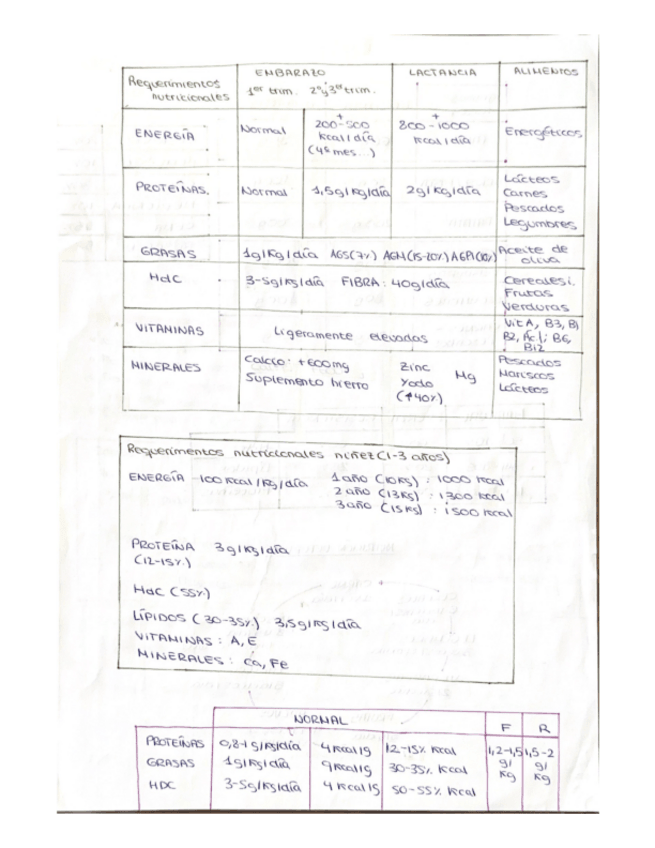 Requerimientos nutricionales | EMBARAZO 1er trim. 2º y 3er trim. | LACTANCIA | ALIMENTOS
ENERGÍA | Normal | + 200-500 Kcal/día (4º mes...) | + 800-1000 Kcal/día | Energéticos
PROTEÍNAS. | Normal | 1,5g/Kg/día | 2g/Kg/día | Lácteos Carnes Pescados Legumbres
GRASAS | 1g/Kg/día AGS(7%) AGM(15-20%) AGPI(10%) | Aceite de oliva
HdC | 3-5g/Kg/día FIBRA: 40g/día | Cereales i. Frutas Verduras
VITAMINAS | Ligeramente elevadas | Vit A, B3, B1 B2, Ác.f; B6, B12
MINERALES | Calcio: +600mg Suplemento hierro | Zinc Yodo (↑40%) Mg | Pescados Mariscos Lácteos
Requerimentos nutricionales niñez (1-3 años)
ENERGÍA -100 Kcal/Kg/día 1 año (10Kg) : 1000 Kcal
2 año (13Kg) : 1300 Kcal
3 año (15Kg) : 1500 Kcal
PROTEÍNA 3g/Kg/día
(12-15%)
HdC (55%)
LÍPIDOS (30-35%) 3,5g/Kg/día
VITAMINAS : A, E
MINERALES : Ca, Fe
NORMAL | F | R
PROTEÍNAS | 0,8-1g/Kg/día | 4Kcal/g | 12-15% Kcal | 1,2-1,5 g/Kg | 1,5-2 g/Kg
GRASAS | 1g/Kg/día | 9Kcal/g | 30-35% Kcal
HDC | 3-5g/Kg/día | 4 Kcal/g | 50-55% Kcal